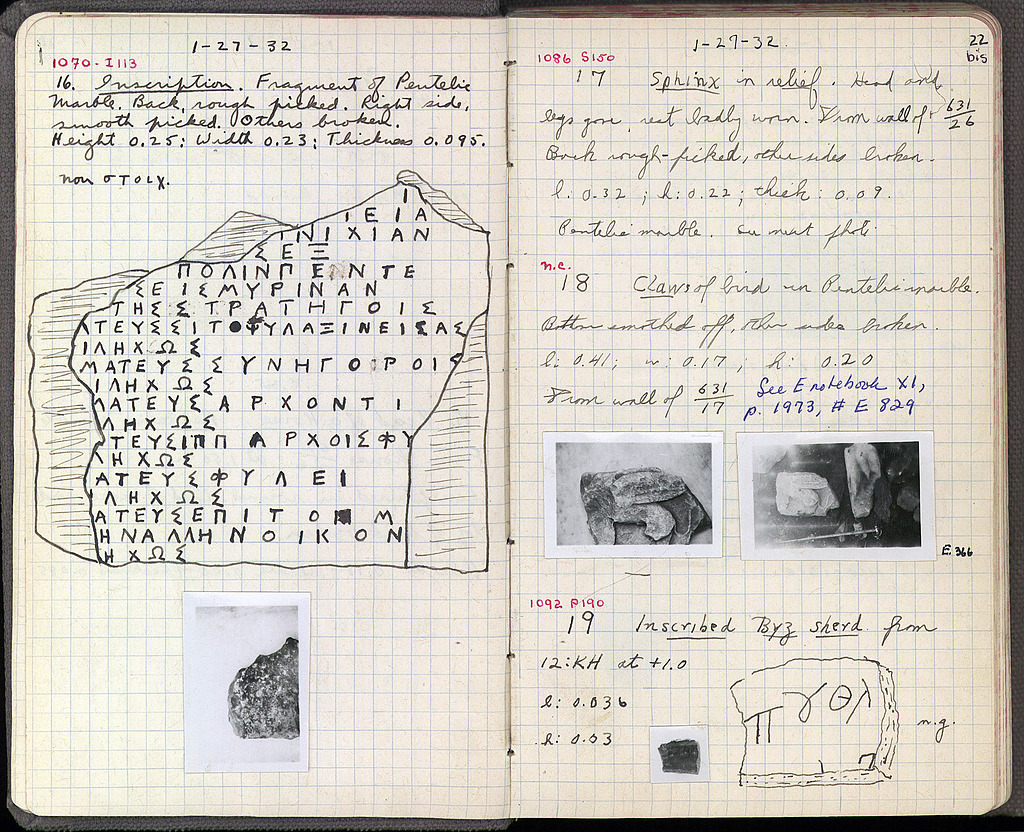 1-27-32
1070-I113
16. Inscription. Fragment of Pentelic
Marble. Back, rough picked. Right side,
smooth picked. Others broken.
Height 0.25; Width 0.23; Thickness 0.095.
non στοιχ.
Ι
ΙΕΙΑ
ΙΝΙΧΙΑΝ
ΣΕΞ
ΠΟΛΙΝΠΕΝΤΕ
ΣΕΙΣΜΥΡΙΝΑΝ
ΤΗΣΣΤΡΑΤΗΓΟΙΣ
ΑΤΕΥΣΣΙΤΟΦΥΛΑΞΙΝΕΙΣΑΣ
ΙΛΗΧΩΣ
ΜΑΤΕΥΣΣΥΝΗΓΟΡΟΙΣ
ΙΛΗΧΩΣ
ΜΑΤΕΥΣΑΡΧΟΝΤΙ
ΛΗΧΩΣ
ΑΤΕΥΣΙΠΠΑΡΧΟΙΣΦΥ
ΛΗΧΩΣ
ΑΤΕΥΣΦΥΛΕΙ
ΙΛΗΧΩΣ
ΑΤΕΥΣΕΠΙΤΟ Μ
ΗΝΑΛΛΗΝΟΙΚΟΝ
ΗΧΩΣ
1-27-32.
22
bis
1086 S150
17 Sphinx in relief. Head and
legs gone, rest badly worn. From wall of 631/26
Back rough-picked, other sides broken.
l: 0.32; h: 0.22; thick: 0.09.
Pentelic marble. See next photo.
n.c.
18 Claws of bird in Pentelic marble.
Bottom smothed off, other sides broken.
l: 0.41; w: 0.17; h: 0.20
From wall of 631/17
See E notebook XI,
p. 1973, # E 829
E.366
1092 P190
19 Inscribed Byz sherd from
12:KH at +1.0
l: 0.036
h: 0.03
Π γ Θ λ
n.g.